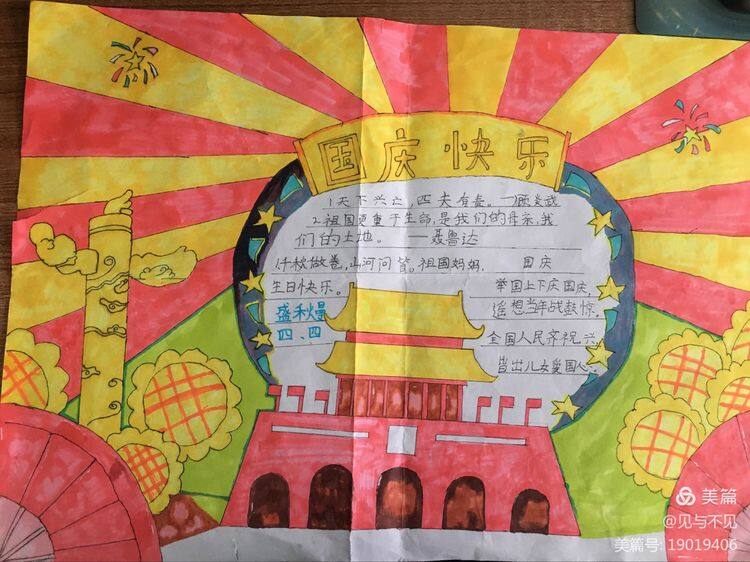 国庆快乐
1天下兴亡，匹夫有责。—顾炎武
2.祖国更重于生命，是我们的母亲，我
们的土地。——聂鲁达
仟秋做卷，山河问答。祖国妈妈，
生日快乐。
盛秋熳
四、四
国庆
举国上下庆国庆，
遥想当年战鼓惊。
全国人民齐祝兴，
皆出儿女爱国心。
美篇
@见与不见
美篇号: 19019406